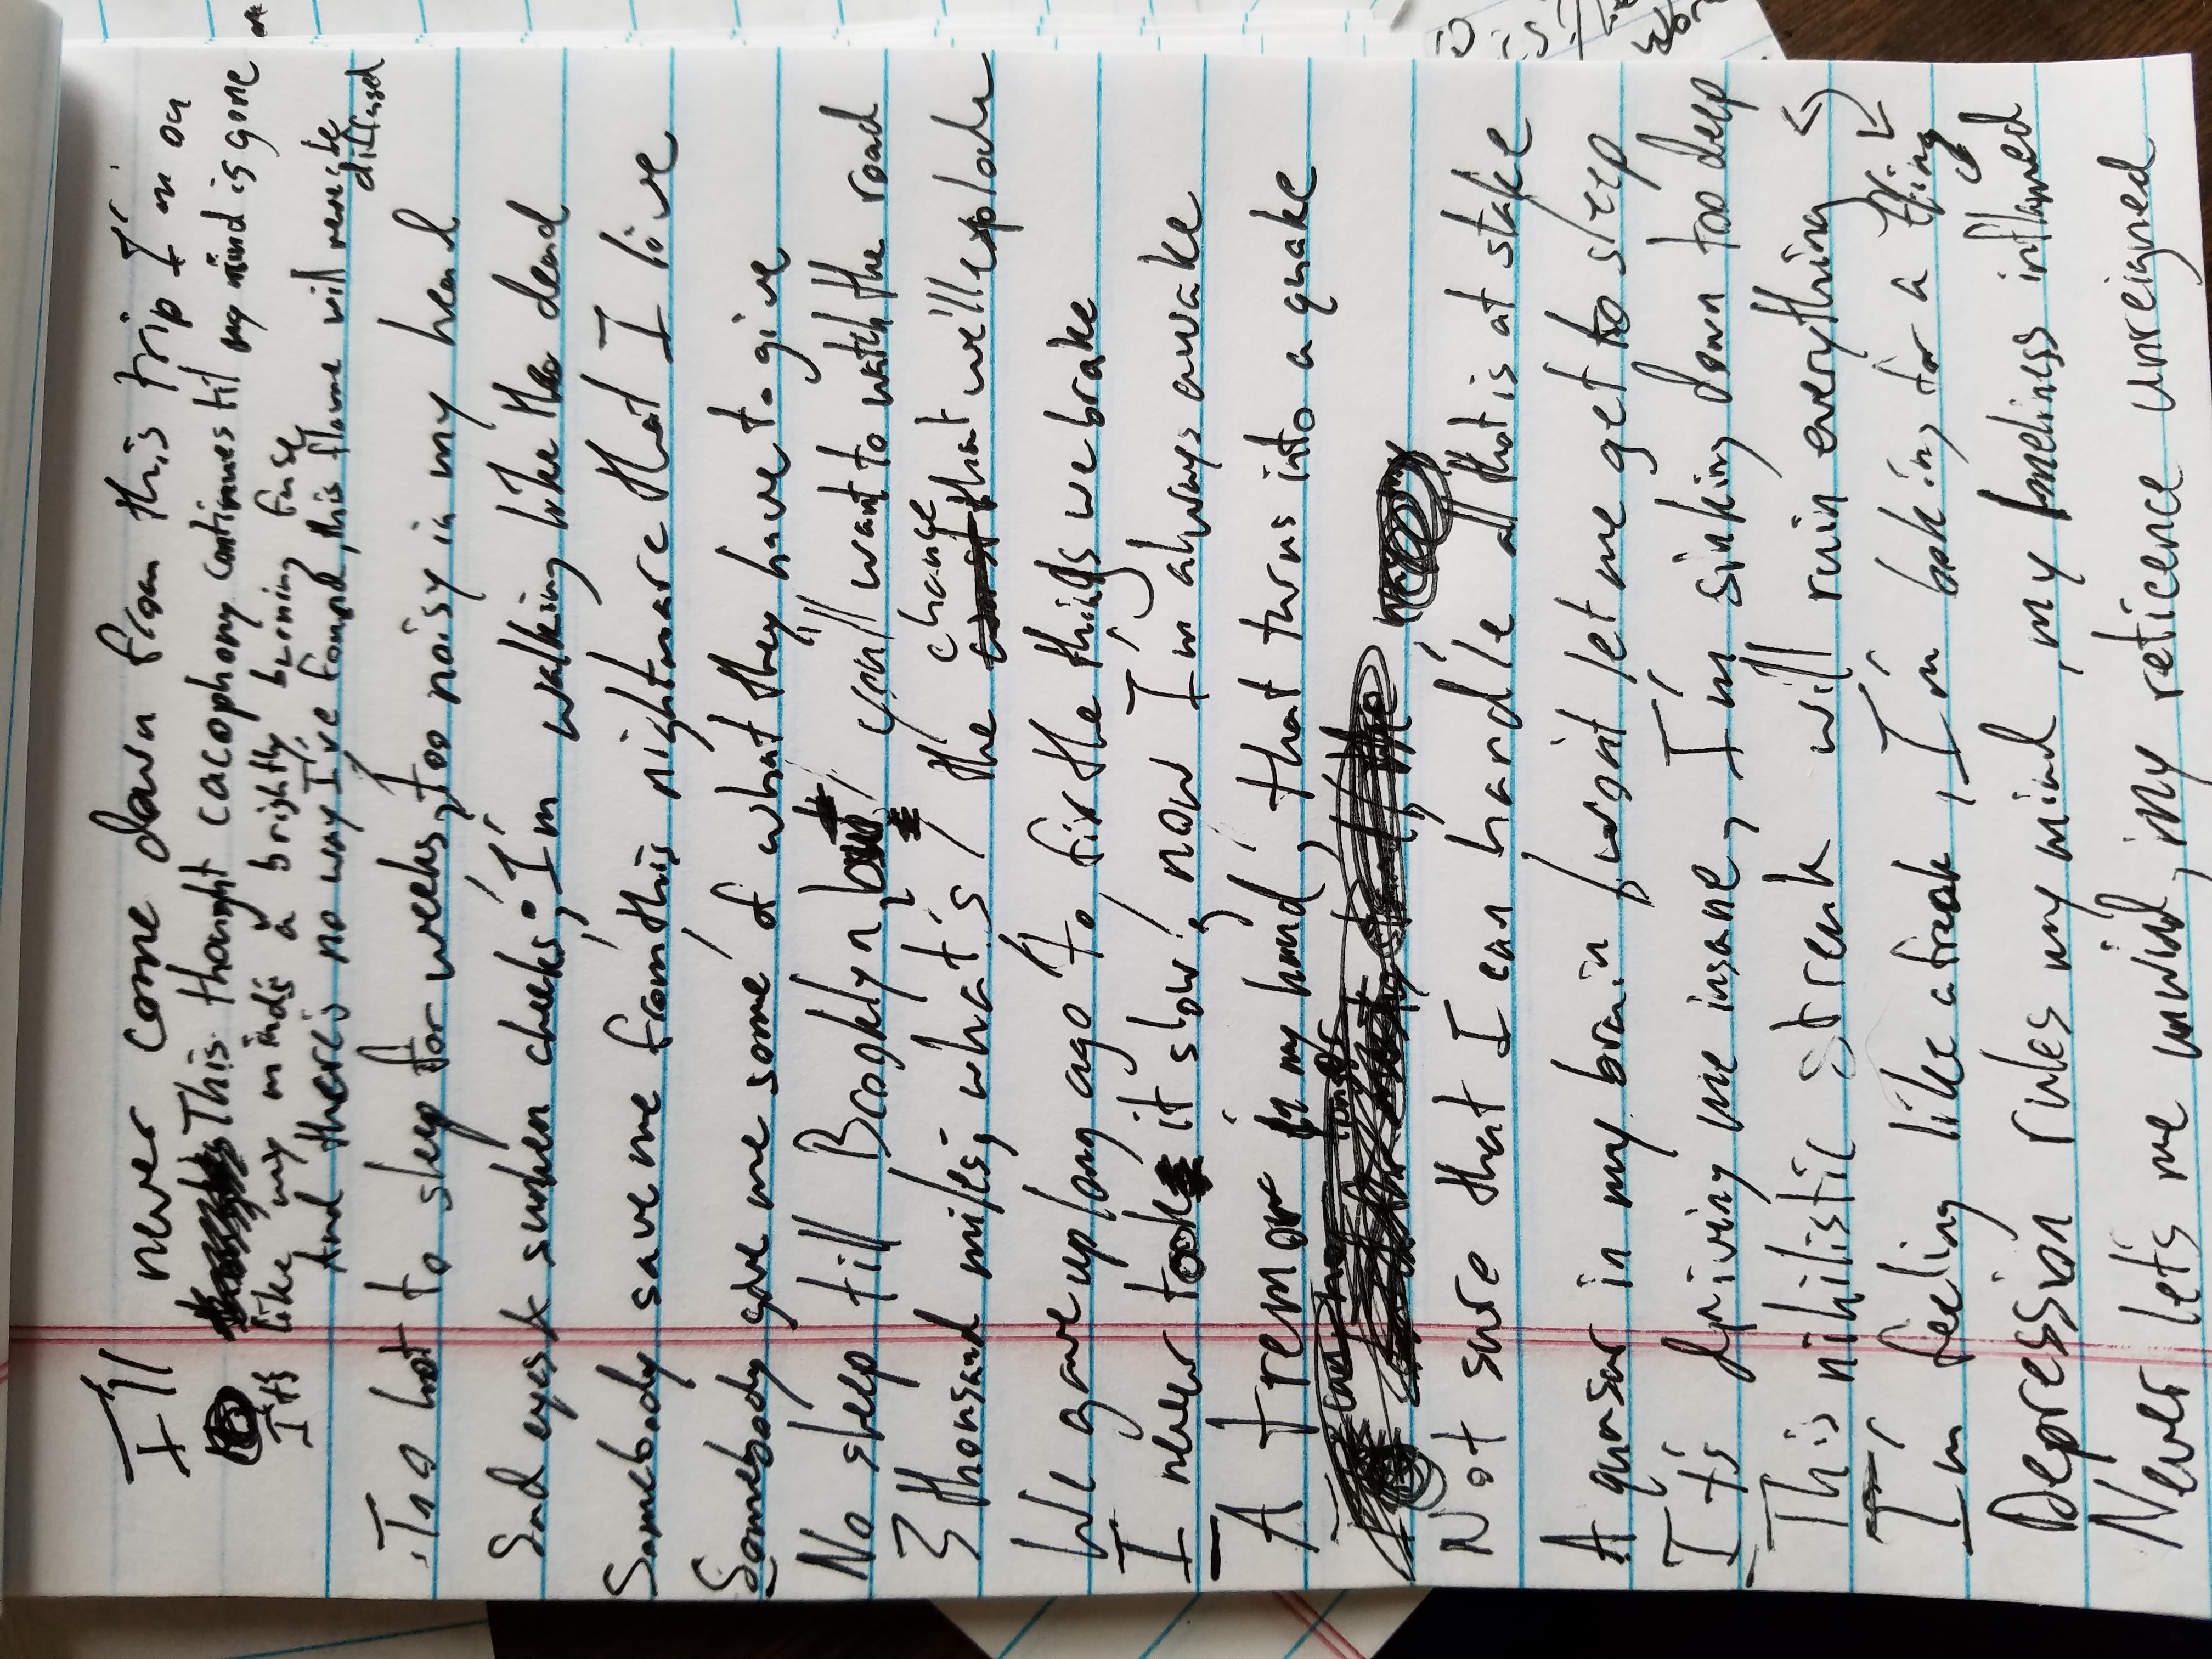 I'll never come down from this trip I'm on
This thought cacophony continues til my mind is gone
It's like my mind's a brightly burning fuse
And there's no way I've found, this flame will never be
diffused
Too hot to sleep for weeks, too noisy in my head
Sad eyes & sunken cheeks; I'm walking like the dead
Somebody save me from this nightmare that I live
Somebody give me some of what they have to give
No sleep till Brooklyn, but you'll want to watch the road
change
3 thousand miles; what's / the worst that we'll explode
We gave up long ago to fix the things we brake
I never took it slow, now I'm always awake
A tremor in my hand, that turns into a quake
can no longer
the
Not sure that I can handle all that is at stake
A quasar in my brain / won't let me get to sleep
It's driving me insane, I'm sinking down too deep
This nihilistic streak will ruin everything
I'm feeling like a freak, I'm looking for a fling
Depression rules my mind, my loneliness inflamed
Never let's me unwind, my reticence unreigned